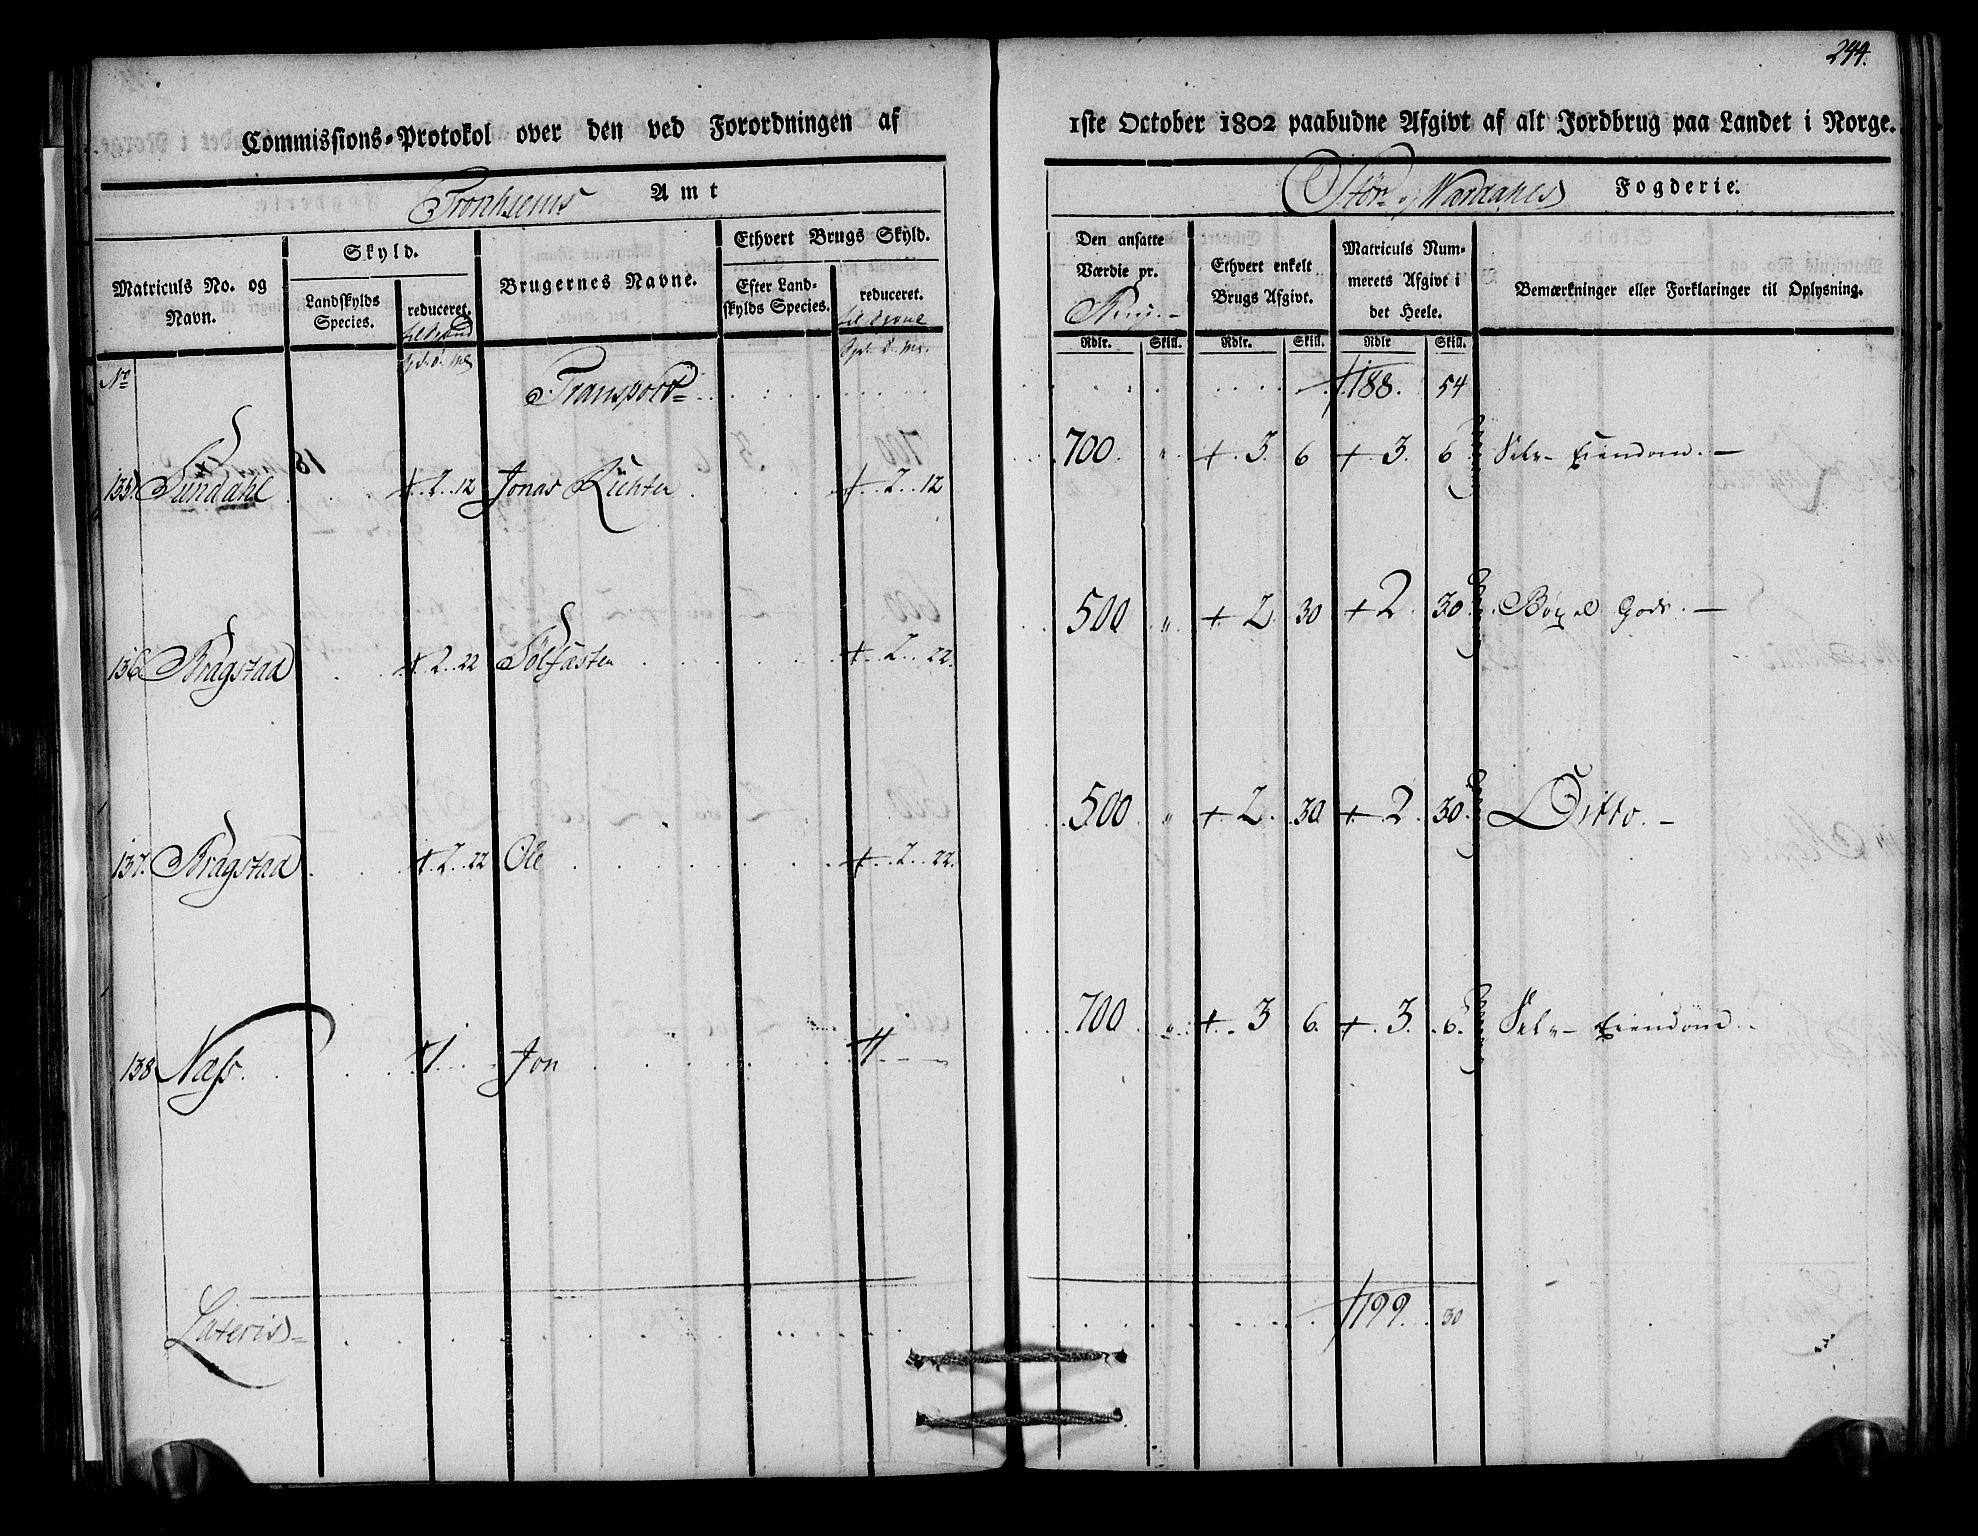 244.
Commissions-Protokol over den ved Forordningen af 1ste October 1802 paabudne Afgivt af alt Jordbrug paa Landet i Norge.
Tronhiems Amt Stör- og Værdahls Fogderie.
Matriculs No. og Navn.
Skyld.
Landskylds Species.
reduceret.
Brugernes Navne.
Ethvert Brugs Skyld.
Efter Landskylds Species.
reduceret.
Den ansatte Værdie pr.
Brug.
Ethvert enkelt Brugs Afgivt.
Matriculs Nummerets Afgivt i det Heele.
Bemærkninger eller Forklaringer til Oplysning.
Rdlr. Skill. Rdlr. Skill. Rdlr Skill.
No Transport 1188. 54
135. Sundahl 18 2 12 Jonas Richter 2 12 700 " 3 6 3 6 Selv-Eiendom.
136 Bragstad 2 22 Solfasten 2 22 500 " 2 30 2 30 Böxel Gods.
137. Bragstad 2 22 Ole 2 22. 500 " 2 30 2 30 Ditto.
138 Næss 1 Jon 1 700 " 3 6 3 6 Selv-Eiendom
Lateris 1199 30